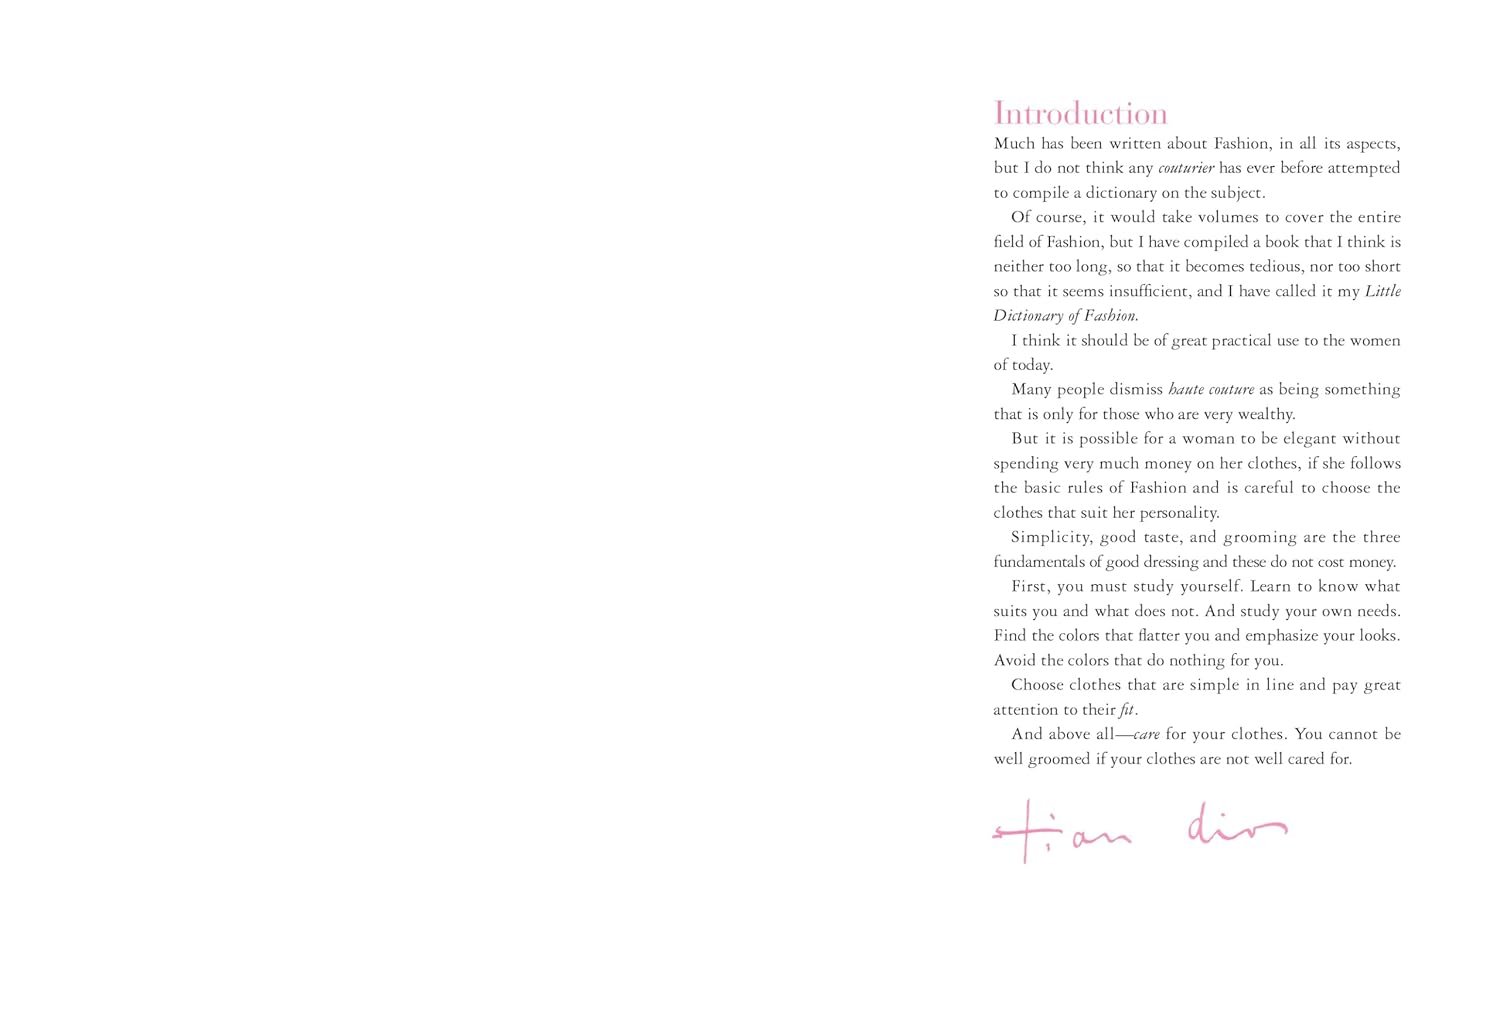 Introduction
Much has been written about Fashion, in all its aspects,
but I do not think any couturier has ever before attempted
to compile a dictionary on the subject.
Of course, it would take volumes to cover the entire
field of Fashion, but I have compiled a book that I think is
neither too long, so that it becomes tedious, nor too short
so that it seems insufficient, and I have called it my Little
Dictionary of Fashion.
I think it should be of great practical use to the women
of today.
Many people dismiss haute couture as being something
that is only for those who are very wealthy.
But it is possible for a woman to be elegant without
spending very much money on her clothes, if she follows
the basic rules of Fashion and is careful to choose the
clothes that suit her personality.
Simplicity, good taste, and grooming are the three
fundamentals of good dressing and these do not cost money.
First, you must study yourself. Learn to know what
suits you and what does not. And study your own needs.
Find the colors that flatter you and emphasize your looks.
Avoid the colors that do nothing for you.
Choose clothes that are simple in line and pay great
attention to their fit.
And above all—care for your clothes. You cannot be
well groomed if your clothes are not well cared for.
tian dior